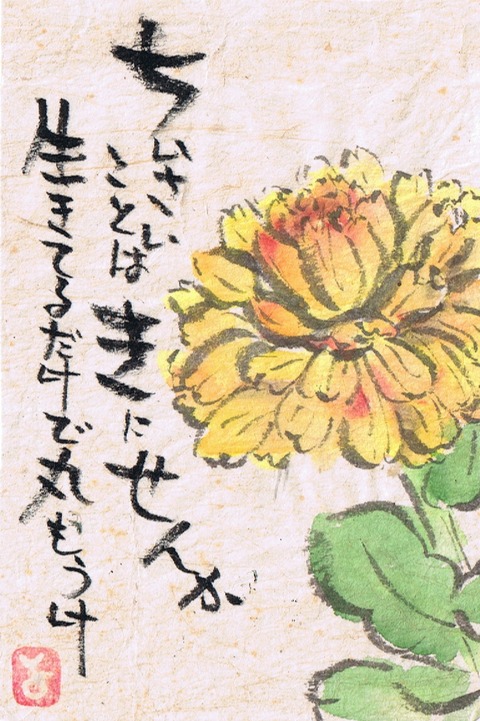 ちいさい
ことは
きにせんが
生きてるだけで丸もうけ